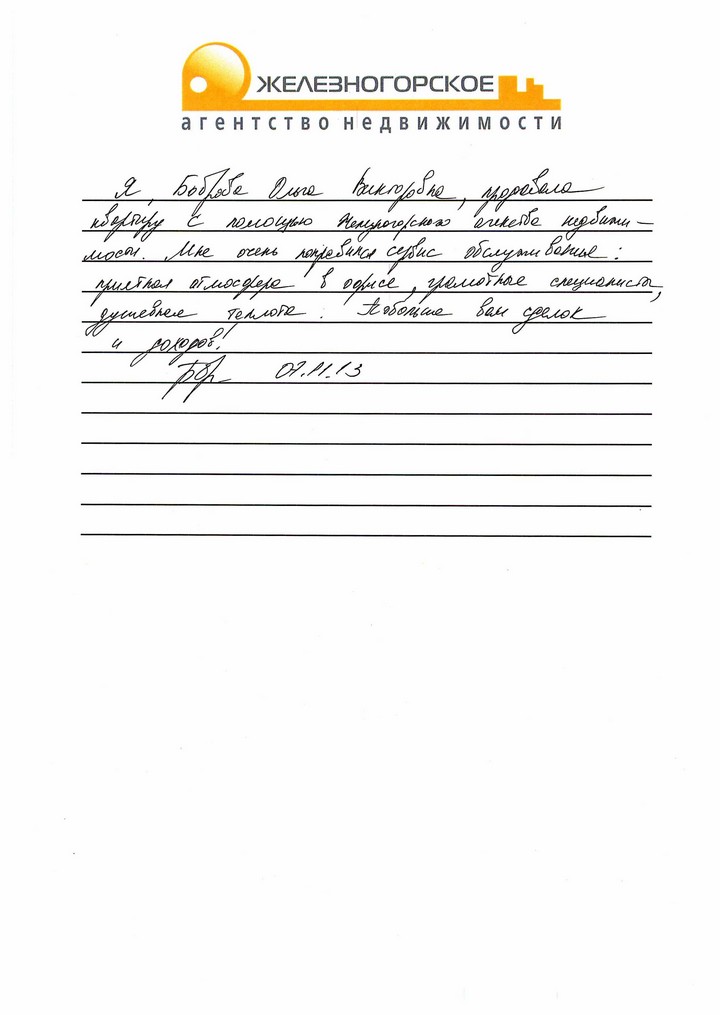 ЖЕЛЕЗНОГОРСКОЕ
агентство недвижимости
Я, Боброва Ольга Викторовна, продавала
квартиру с помощью Железногорского агенства недвижи-
мости. Мне очень понравился сервис обслуживания:
приятная атмосфера в офисе, грамотные специалисты,
душевная теплота. Побольше вам сделок
и доходов!
07.11.13